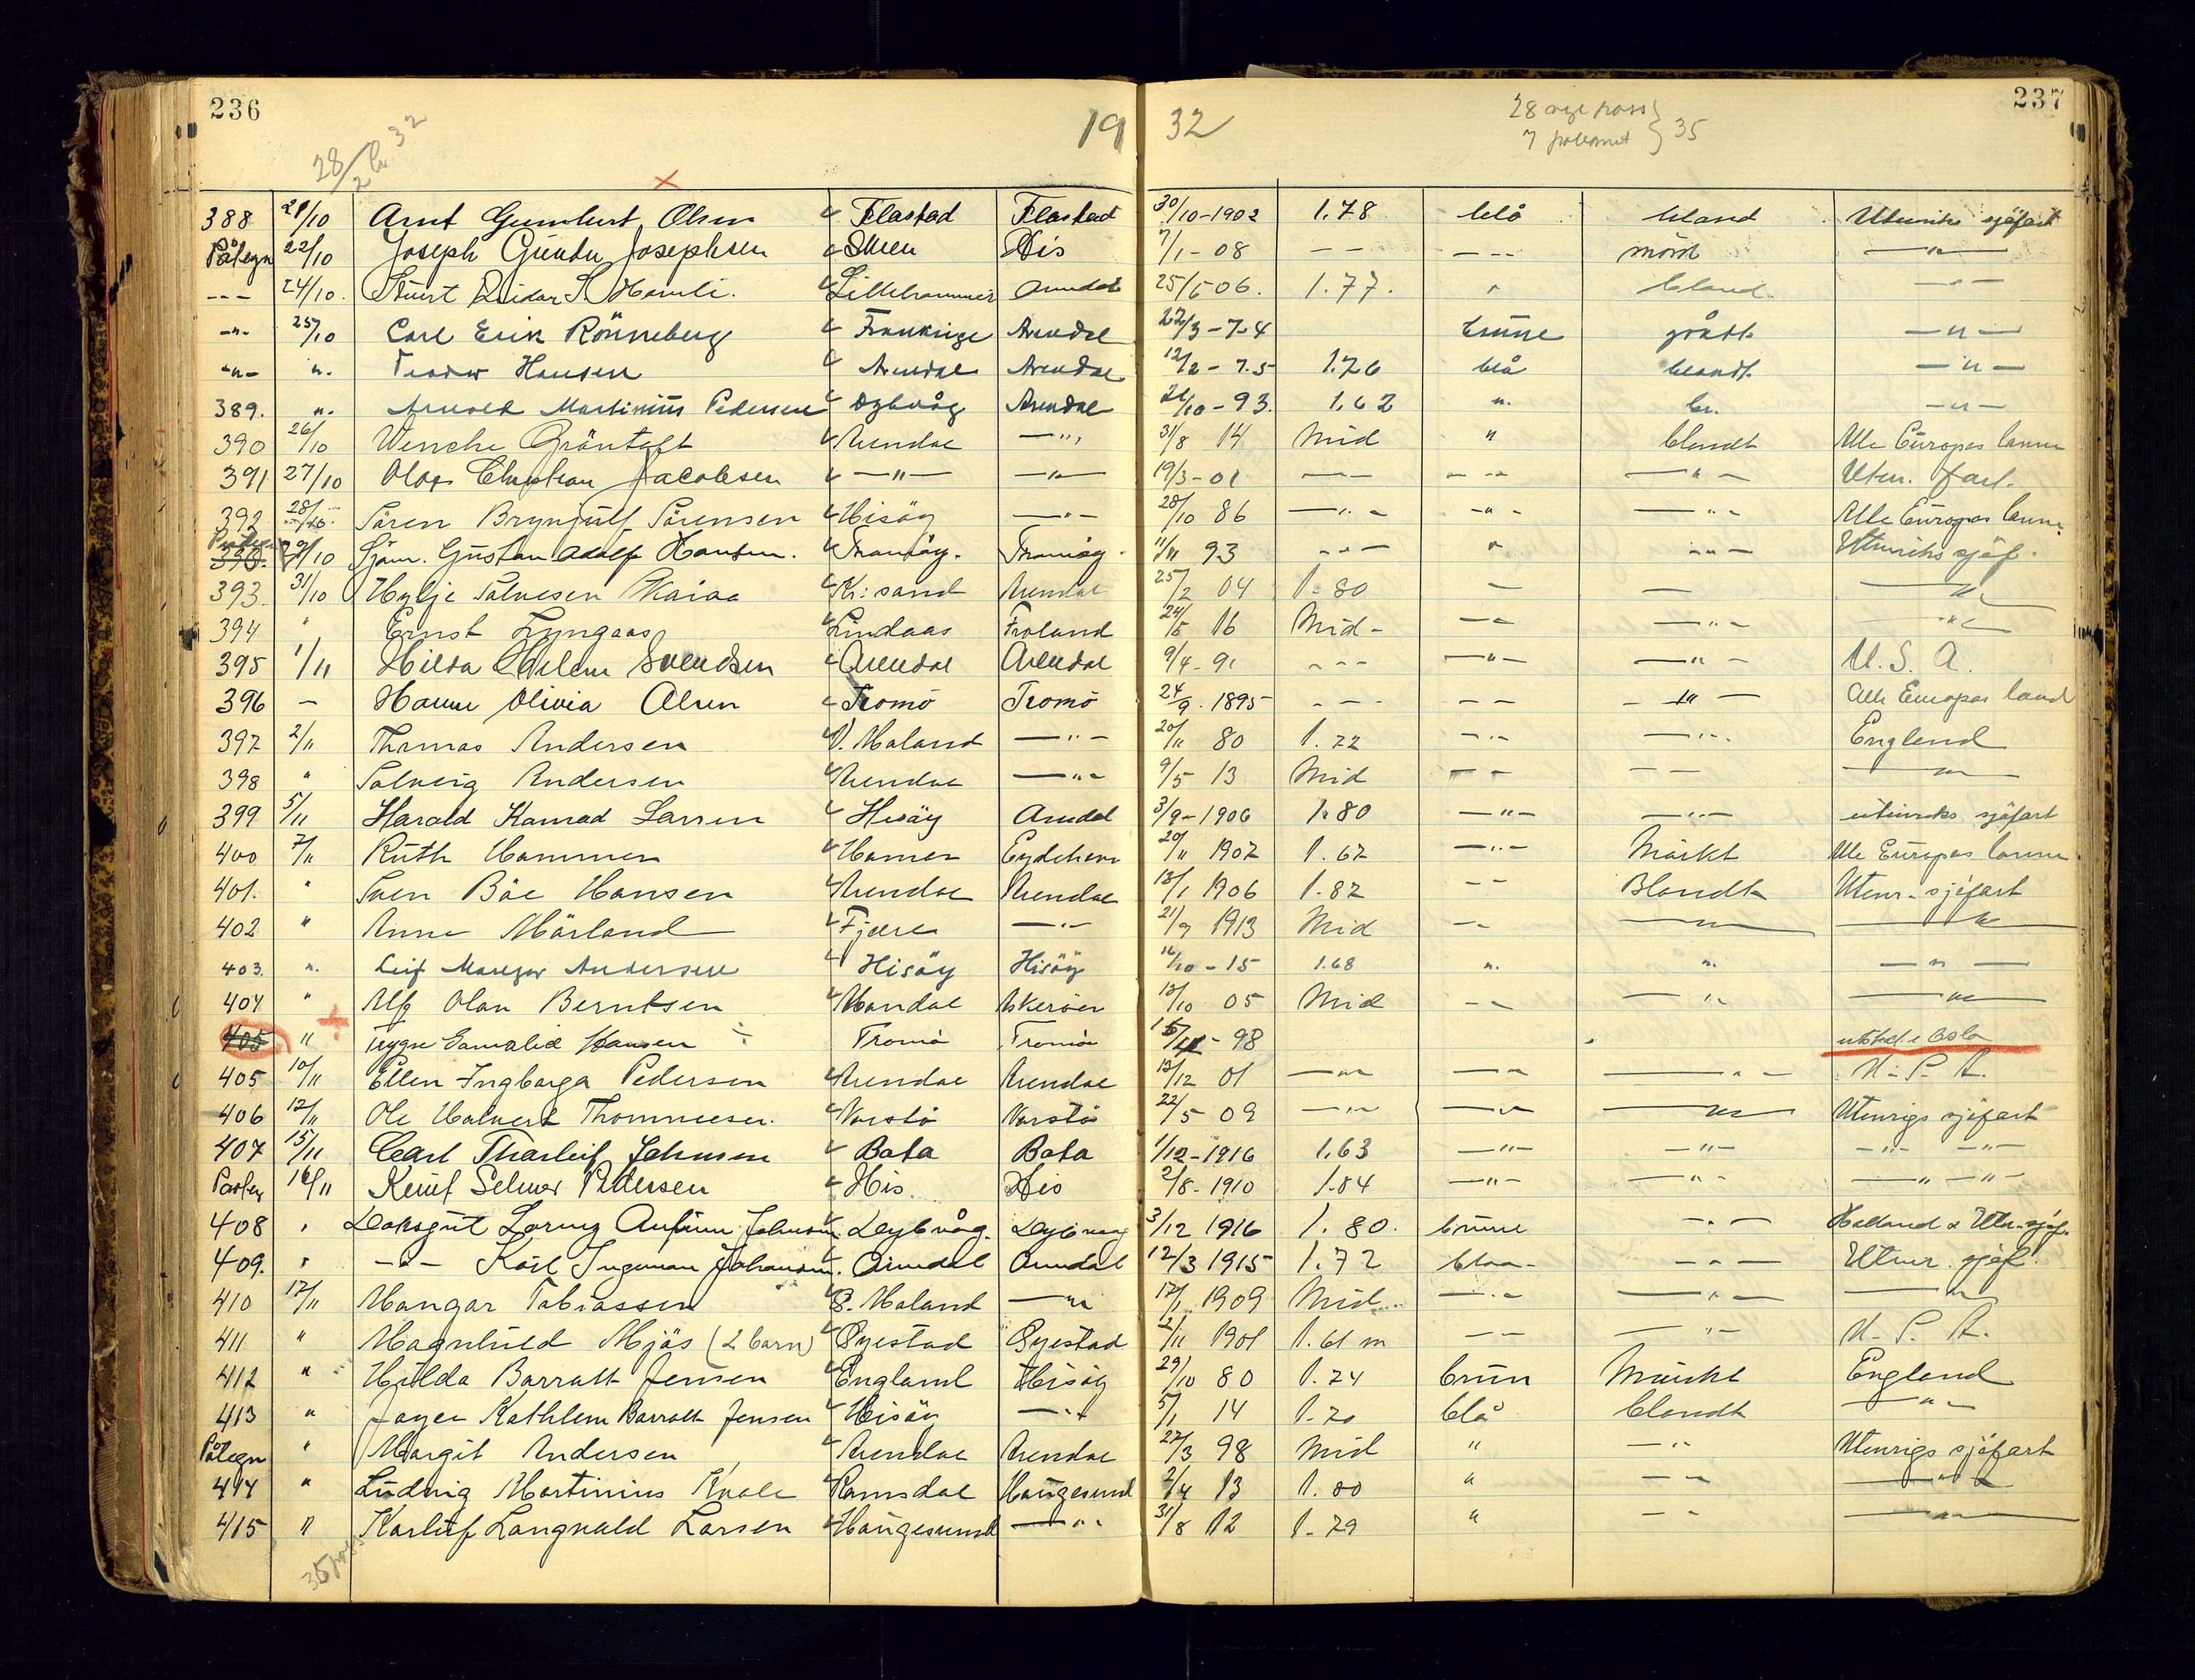 236
19
32
237
28/2 32
28 nye pass
7 } 35
388 21/10 Arnt Gunibert Olsen Flastad Flastad 30/10-1902 1.78 blå bland Utenriks sjøfart
Påtegn 22/10 Joseph Gundu Josephsen Skien His 7/1-08 -- --- mörk -"-
--- 24/10. Reidar S. Hamli. Lillehammer Arendal 25/5 06. 1.77. " bland. -"-
-"- 25/10 Carl Erik Rönneberg Frankrige Arendal 22/3-74 brune grått -"-
-"- ". Teodor Hansen Arendal Arendal 12/2-75 1.76 blå blondt. -"-
389. ". Arnold Martinius Pedersen Dybvåg Arendal 21/10-93. 1.62 ". br. -"-
390 26/10 Wenche Gröntoft Arendal -"- 31/8 14 Mid " blondt Alle Europas lanne
391 27/10 Olaf Christian Jacobsen -"- -"- 19/3-01 --- --- -"- Uten. fart.
392 28/10 Sören Brynjulf Sörensen Hisöy -"- 28/10 86 -"- -"- -"- Alle Europas lanne
Påtegn 390. 29/10 Sjöm. Gustav Adolf Hansen. Tromöy. Tromöy. 11/11 93 --- " -"- Utenriks sjöf.
393. 31/10 Hylje Salvesen Kaiaa Kr:sand Arendal 25/2 04 1.80 - - -"-
394 " Ernst Lyngaas Lindaas Froland 24/5 16 Mid- -- -"- -"-
395 1/11 Hilda Helene Svendsen Arendal Arendal 9/4-91 --- -"- -"- U.S.A.
396 - Hanne Olivia Olsen Tromö Tromö 24/9.1895 --- -- -"- Alle Europas land
397 2/11 Thomas Andersen V. Moland -"- 20/11 80 1.72 -"- -"- England
398 " Solveig Andersen Arendal -"- 9/5 13 Mid -- -- -"-
399 5/11 Harald Konrad Larsen Hisöy Arendal 3/9-1906 1.80 -"- -"- utenriks sjøfart
400 7/11 Ruth Hammer Hamar Eydehavn 20/11 1907 1.67 -"- Mörkt Alle Europas lanne.
401. " Sven Böe Hansen Arendal Arendal 13/1 1906 1.82 -- Blondt Utenr. sjöfart
402 " Anne Mörland Fjære -"- 21/9 1913 Mid -- -"- -"-
403. ". Leif Andersen Hisöy Hisöy 16/10-15 1.68 ". ". -"-
404 " Alf Olav Berntsen Mandal Askerøen 13/10 05 Mid -- -"- -"-
405 " Trygve Gamalid Hansen ÷ Tromö Tromöi 15/11-98 utsted i Oslo
405 10/11 Ellen Ingborga Pedersen Arendal Arendal 13/12 01 -"- -"- -"- U.S.A.
406 12/11 Ole Halvert Thommesen. Narestö Narestö 22/5 09 -"- -"- -"- Utenrigs sjöfart
407 15/11 Carl Tharleif Johnsen Bota Bota 1/12-1916 1.63 -"- -"- -"- -"-
Påtegn 16/11 Knut Selmer Pettersen His. His 2/8-1910 1.84 -"- -"- -"-"-
408 " Dæksgut Lorenz Anfinn Johnsen Dybvåg. Dybvåg 3/12 1916 1.80. brune -"- Holland & Utenr. sjøf.
409. " -"- Karl Ingeman Johansen. Arendal Arendal 12/3 1915 1.72 blaa- -"- Utenr. sjøf.
410 17/11 Mangar Tobiassen Ö. Moland -"- 17/1 1909 Mid -"- -"- -"-
411 " Magnhild Mjös (2 barn) Öyestad Öyestad 2/11 1901 1.61 m -- -"- U.S.A.
412 " Hilda Barratt Jensen England Hisöy 29/10 80 1.74 brun Mörkt England
413 " Joyce Kathleen Barratt Jensen Hisöy -"- 5/1 14 1.70 blå blondt -"-
Påtegn " Margit Andersen Arendal Arendal 27/3 98 Mid " -"- Utenrigs sjöfart
414 " Ludvig Martinius Kvale Ramsdal Haugesund 2/4 13 1.80 " -"- -"-
415 " Karluf Langvald Larsen Haugesund -"- 31/8 12 1.79 " -"- -"-
35 pass